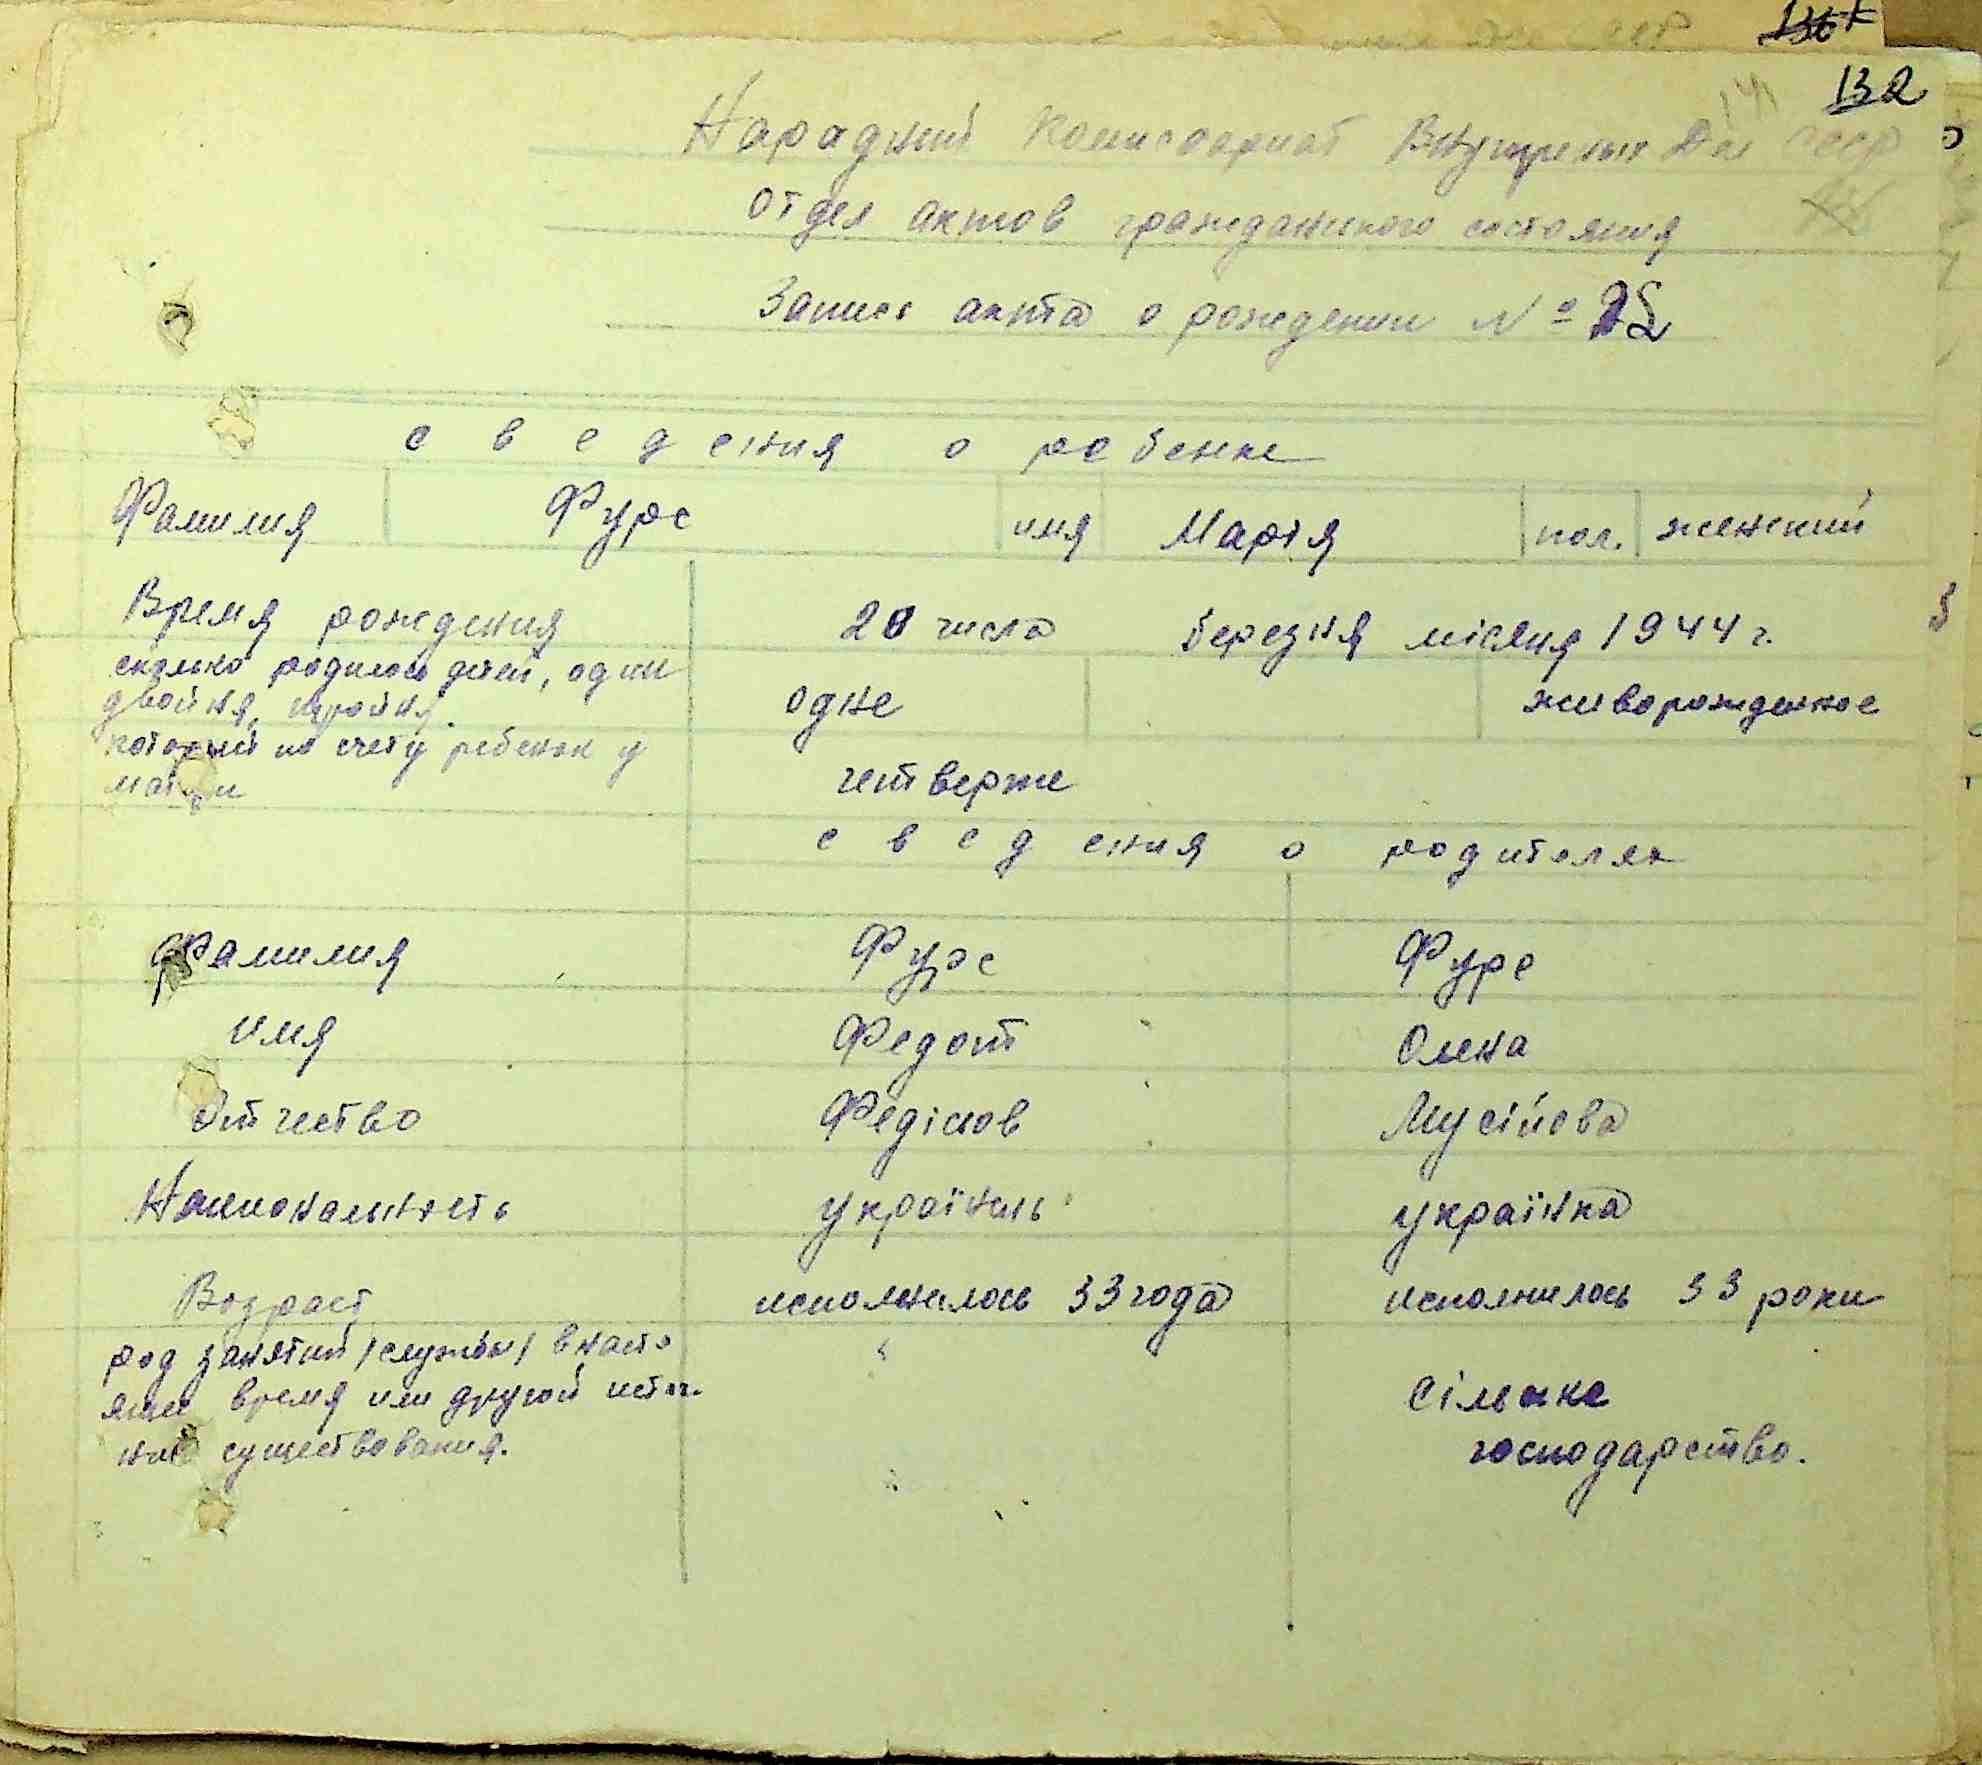 132
Нарадний Комисариат Внутрених Дел СССР
Отдел актов гражданского состояния
Запись акта о рождении № 25
сведения о ребенке
Фамилия Фурс имя Марія пол. женский
Время рождения 28 числа березня місяця 1944 г.
сколько родилось детей, один
двойня, тройня. одне живорожденное
который по счету ребенок у
матери четверте
сведения о родителях
Фамилия Фурс Фурс
имя Федот Олена
Отчество Мусійова
Национальность українець українка
Возраст исполнилось 33 года исполнилось 33 роки
род занятий /службы/ в насто
ящее время или другой источ.
ник существования. сільське
господарство.